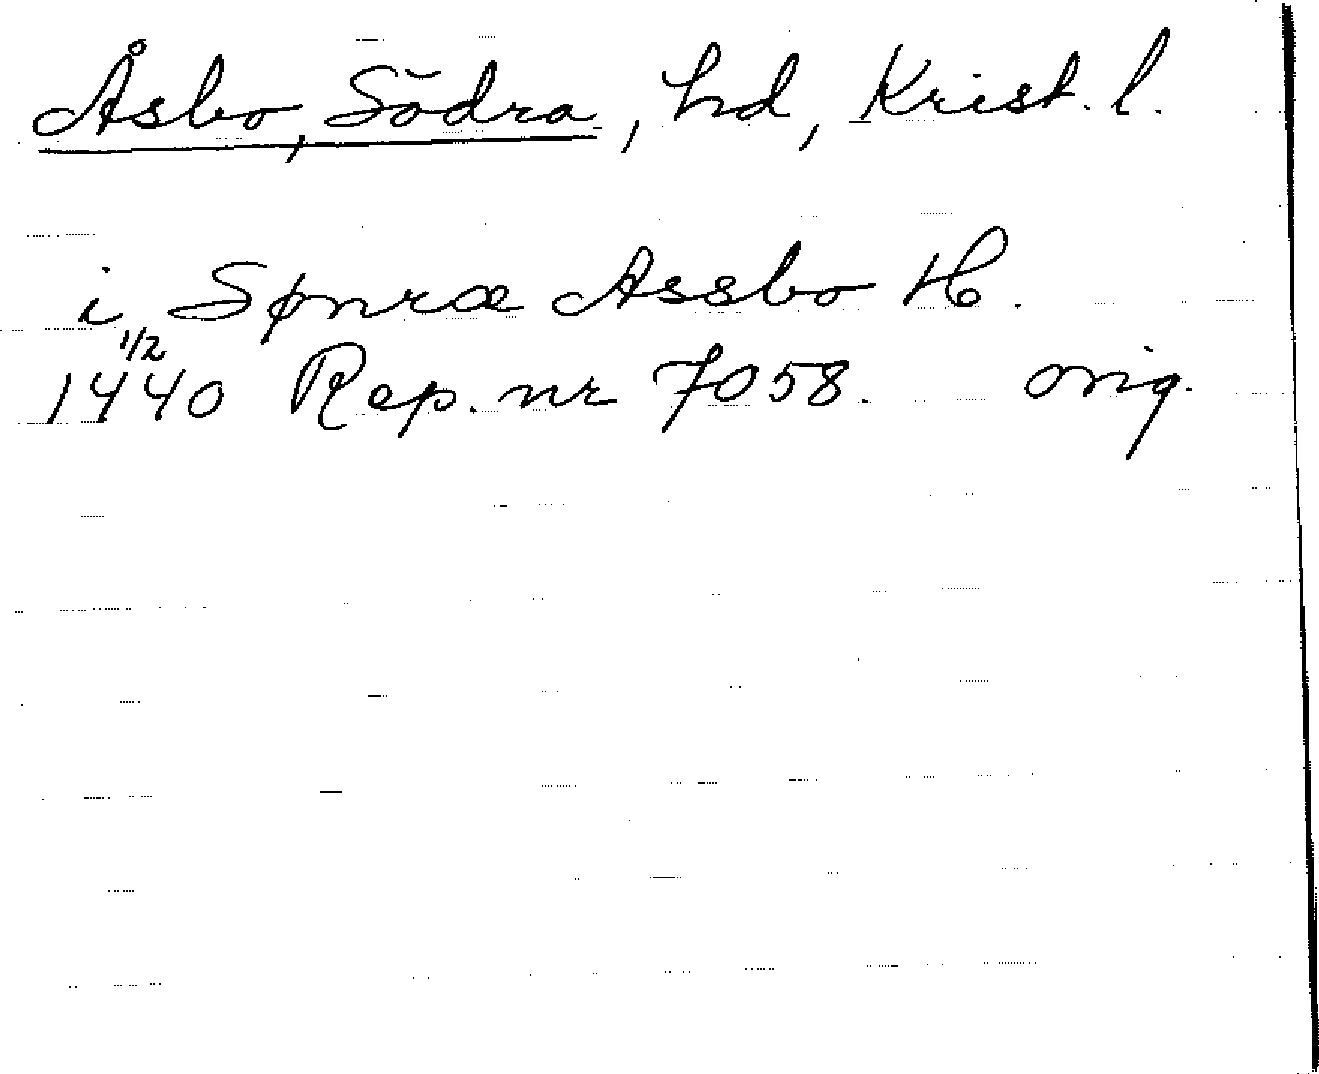 Åsbo, Södra, hd, Krist. l.
i Spnræ Assbo H.
1/2
1440 Rep. nr 7058. orig.